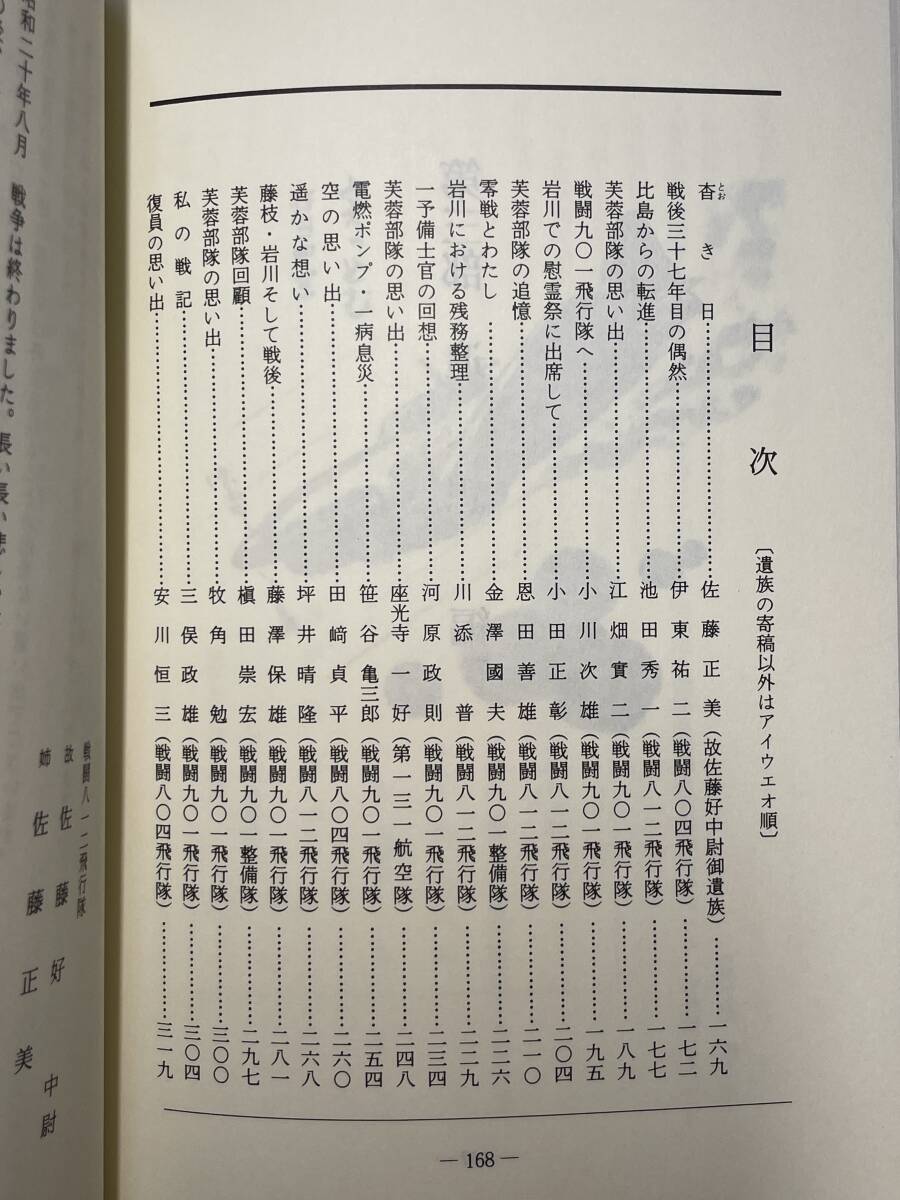 目次
〔遺族の寄稿以外はアイウエオ順〕
杳き日……佐藤正美（故佐藤好中尉御遺族）……一六九
とお
戦後三十七年目の偶然……伊東祐二（戦闘八〇四飛行隊）……一七二
比島からの転進……池田秀一（戦闘八一二飛行隊）……一七七
芙蓉部隊の思い出……江畑實二（戦闘九〇一飛行隊）……一八九
戦闘九〇一飛行隊へ……小川次雄（戦闘九〇一飛行隊）……一九五
岩川での慰霊祭に出席して……小田正彰（戦闘八一二飛行隊）……二〇四
芙蓉部隊の追憶……恩田善雄（戦闘八一二飛行隊）……二一〇
零戦とわたし……金澤國夫（戦闘九〇一整備隊）……二二六
岩川における残務整理……川添普（戦闘八一二飛行隊）……二二九
一予備士官の回想……河原政則（戦闘九〇一飛行隊）……二三四
芙蓉部隊の思い出……座光寺一好（第一三一航空隊）……二四八
電燃ポンプ・一病息災……笹谷亀三郎（戦闘九〇一飛行隊）……二五四
空の思い出……田﨑貞平（戦闘八〇四飛行隊）……二六〇
遥かな想い……坪井晴隆（戦闘八一二飛行隊）……二六八
藤枝・岩川そして戦後……藤澤保雄（戦闘九〇一飛行隊）……二八一
芙蓉部隊回顧……槇田崇宏（戦闘九〇一整備隊）……二九七
芙蓉部隊の思い出……牧角勉（戦闘九〇一飛行隊）……三〇〇
私の戦記……三俣政雄（戦闘九〇一飛行隊）……三〇四
復員の思い出……安川恒三（戦闘八〇四飛行隊）……三一九
― 168 ―
戦闘八一二飛行隊
故佐藤好中尉
姉佐藤正美
昭和二十年八月　戦争は終わりました。長い長い